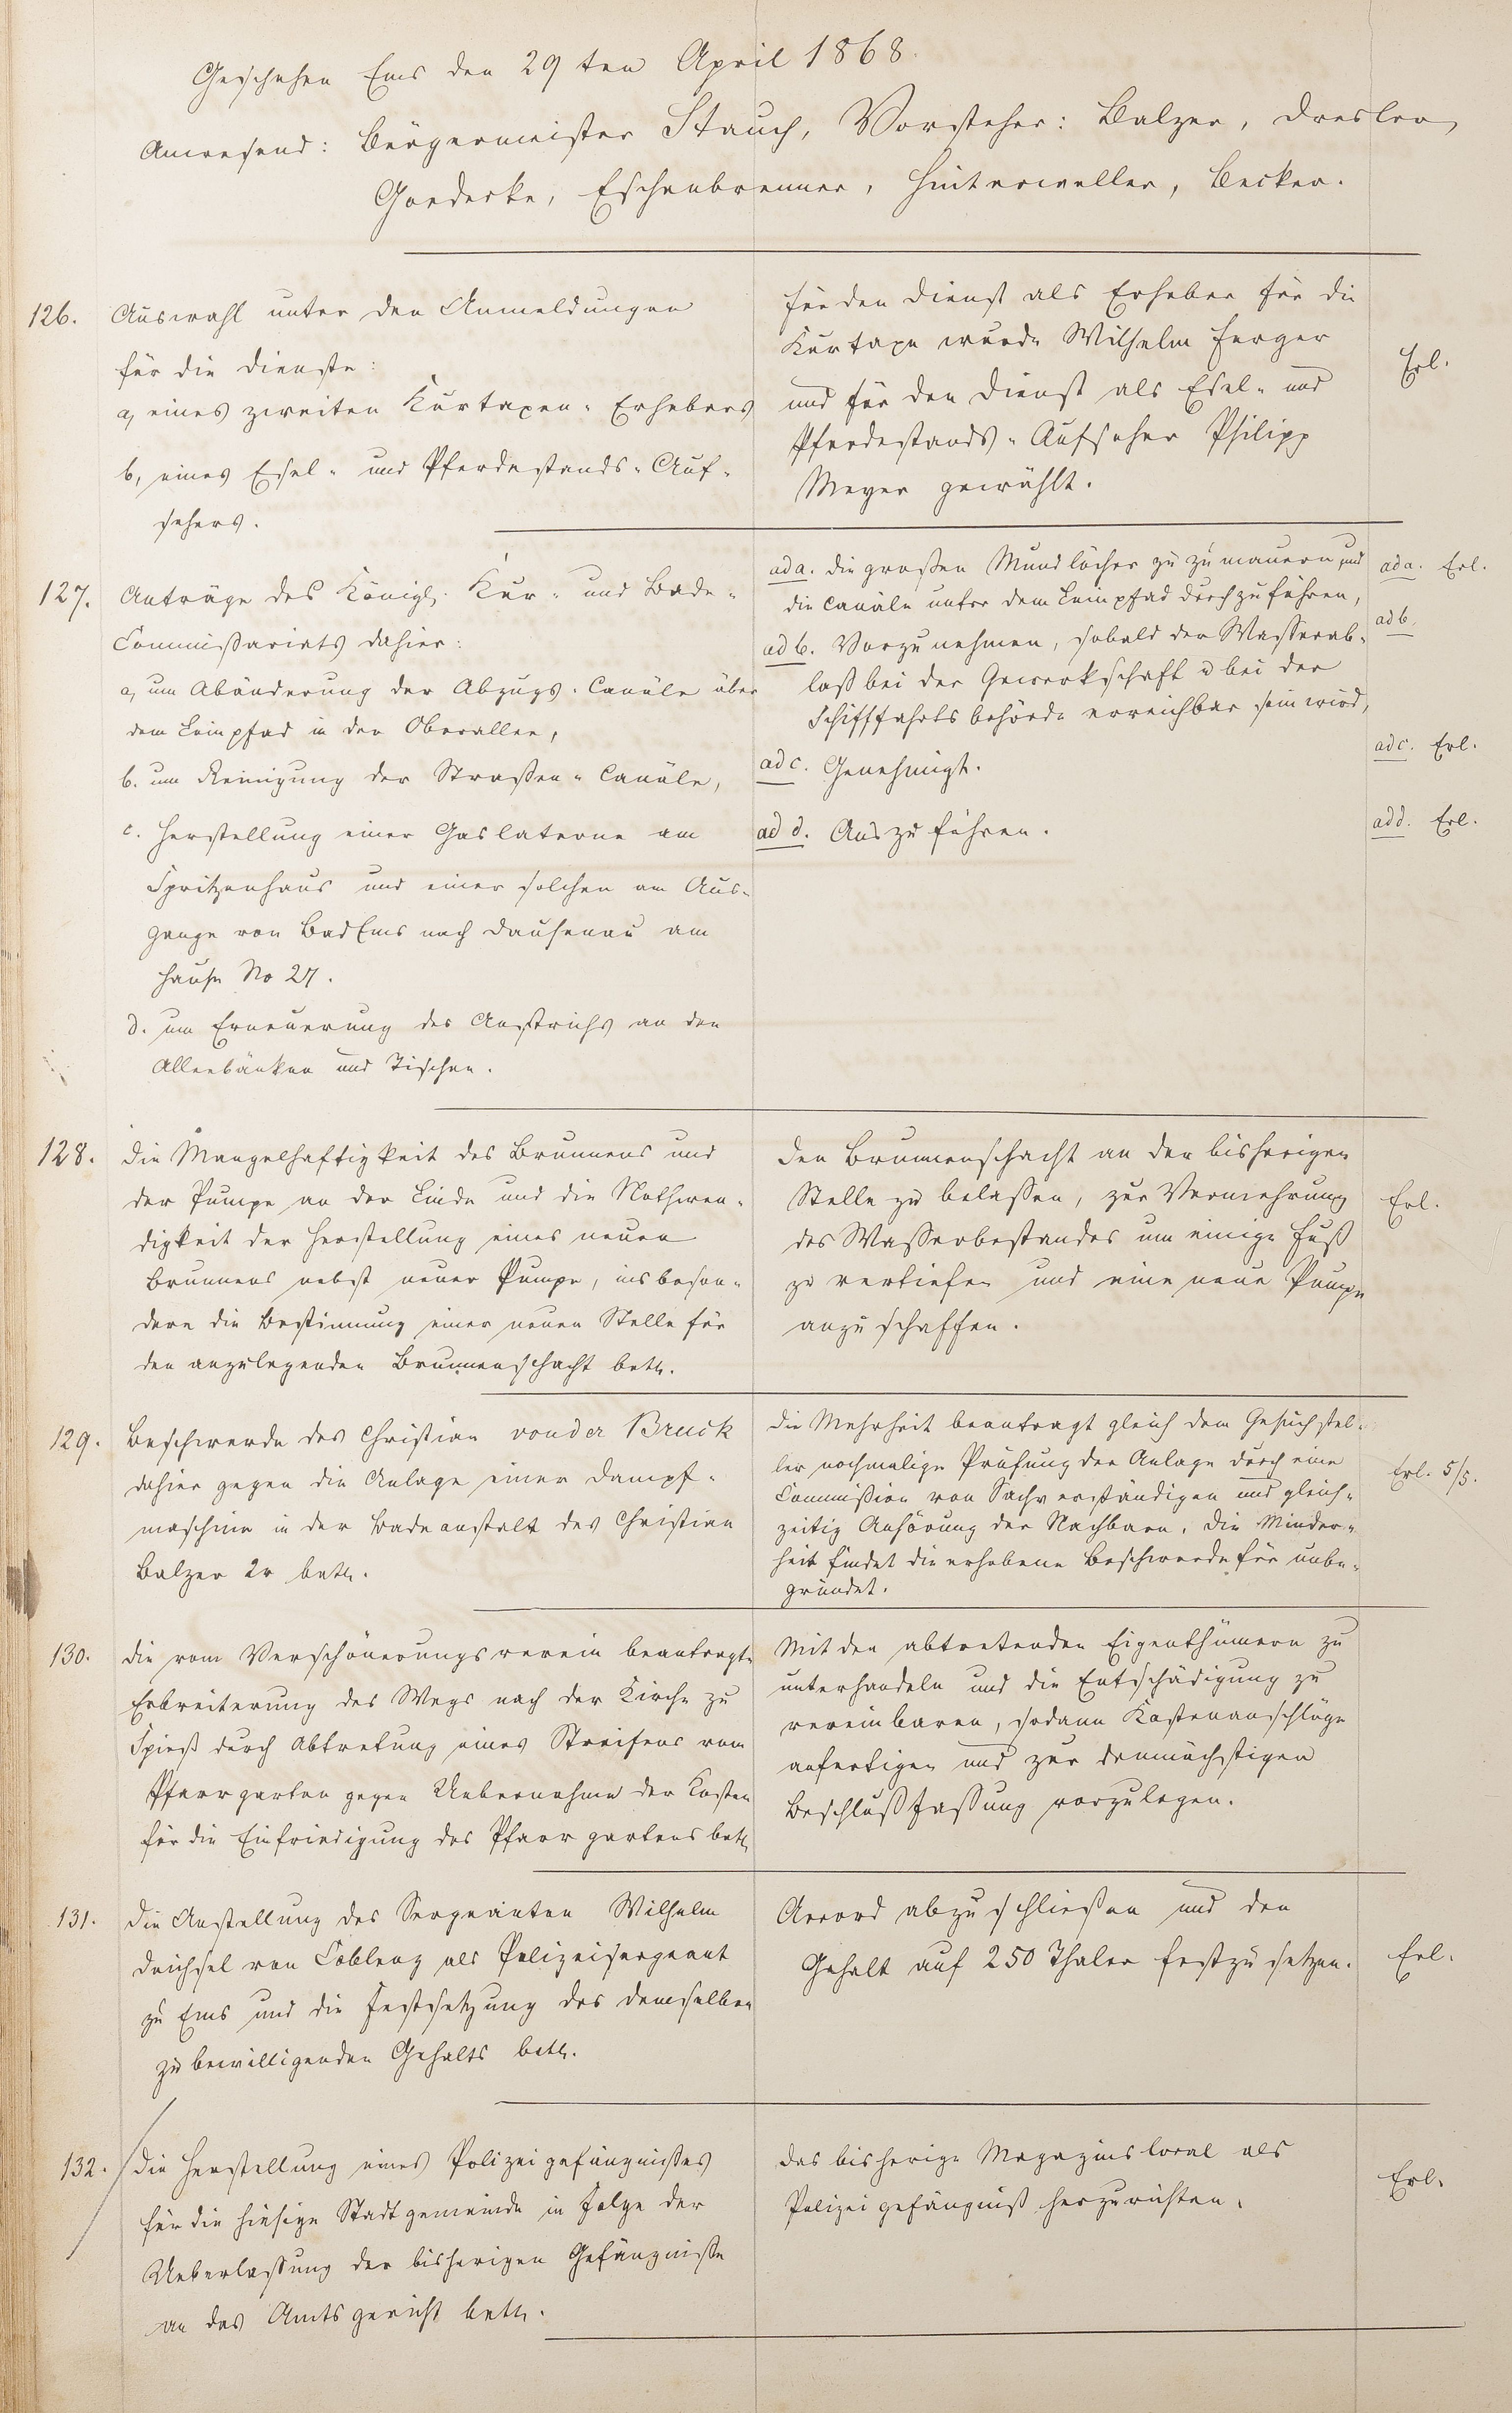 Geschehen Ems den 29ten April 1868.
Anwesend: Bürgermeister Stauch, Vorsteher: Balzer, Dresler,
Goedecke, Eschenbrenner, Hinterweller, Becker.
126. Auswahl unter den Anmeldungen
für die Dienste:
a, eines zweiten Kurtaxen-Erhebers
b, eines Esel- und Pferdestands-Auf-
sehers.
Für den Dienst als Erheber für die
Kurtaxe wurde Wilhelm Ferger
und für den Dienst als Esel- und
Pferdestands-Aufseher Philipp
Meyer gewählt.
Erl.
127. Anträge des Königl. Kur- und Bade-
Commißariats dahier:
a, um Abänderung der Abzugs-Canäle über
dem Leinpfad in der Oberallee,
b. um Reinigung der Straßen-Canäle,
c. Herstellung einer Gaslaterne am
Spritzenhaus und einer solchen am Aus-
gange von Bad Ems nach Dausenau am
Hause No 27.
d. um Erneuerung des Anstrichs an den
Alleebänken und Tischen.
ad a. die großen Mundlöcher zu zu mauern und
die Canäle unter dem Leinpfad durchzuführen,
ad b. Vorzunehmen, sobald der Wasserab-
laß bei der Gewerkschaft u bei der
Schifffahrtsbehörde erreichbar sein wird,
ad c. Genehmigt.
ad d. Auszuführen.
ad a. Erl.
ad b.
ad c. Erl.
ad d. Erl.
128. Die Mangelhaftigkeit des Brunnens und
der Pumpe an der Linde und die Nothwen-
digkeit der Herstellung eines neuen
Brunnens nebst neuer Pumpe, insbeson-
dere die Bestimmung einer neuen Stelle für
den anzulegenden Brunnenschacht betr.
Den Brunnenschacht an der bisherigen
Stelle zu belaßen, zur Vermehrung
des Waßerbestandes um einige Fuß
zu vertiefen und eine neue Pumpe
anzuschaffen.
Erl.
129. Beschwerde des Christian von der Bruck
dahier gegen die Anlage einer Dampf-
maschine in der Badeanstalt des Christian
Balzer 2r betr.
Die Mehrheit beantragt gleich dem Gesuchstel-
ler nochmalige Prüfung der Anlage durch eine
Commißion von Sachverständigen und gleich-
zeitig Anhörung der Nachbarn. Die Minder-
heit findet die erhobene Beschwerde für unbe-
gründet.
Erl. 5/5.
130. Die vom Verschönerungsverein beantragte
Erbreiterung des Wegs nach der Kirche zu
Spieß durch Abtretung eines Streifens vom
Pfarrgarten gegen Uebernahme der Kosten
für die Einfriedigung des Pfarrgartens betr.
Mit den abtretenden Eigenthümern zu
unterhandeln und die Entschädigung zu
vereinbaren, sodann Kostenanschläge
anfertigen und zur demnächstigen
Beschlußfaßung vorzulegen.
131. Die Anstellung des Sergeanten Wilhelm
Deichsel von Coblenz als Polizeisergeant
zu Ems und die Festsetzung des demselben
zu bewilligenden Gehalts betr.
Accord abzuschließen und den
Gehalt auf 250 Thaler festzusetzen.
Erl.
132. Die Herstellung eines Polizeigefängnißes
für die hiesige Stadtgemeinde in Folge der
Ueberlaßung der bisherigen Gefängniße
an das Amtsgericht betr.
Das bisherige Magazinslocal als
Polizeigefängniß herzurichten.
Erl.